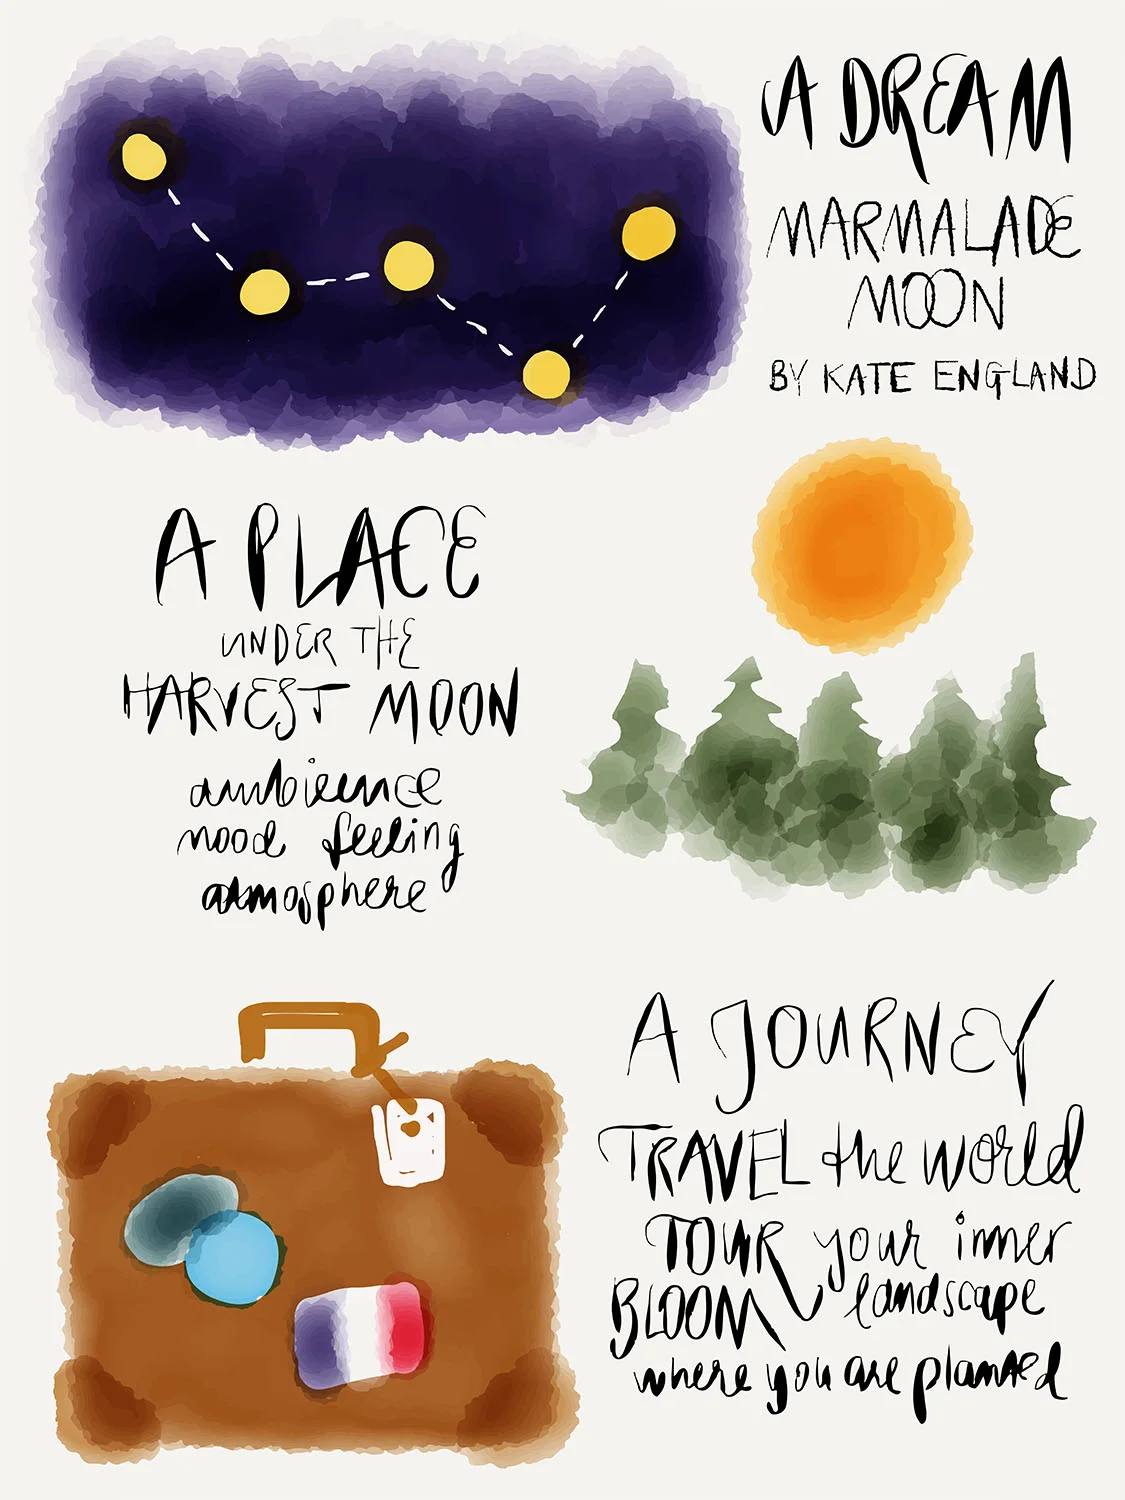 A DREAM
MARMALADE
MOON
BY KATE ENGLAND
A PLACE
UNDER THE
HARVEST MOON
ambience
mood feeling
atmosphere
A JOURNEY
TRAVEL the world
TOUR your inner
landscape
BLOOM
where you are planted